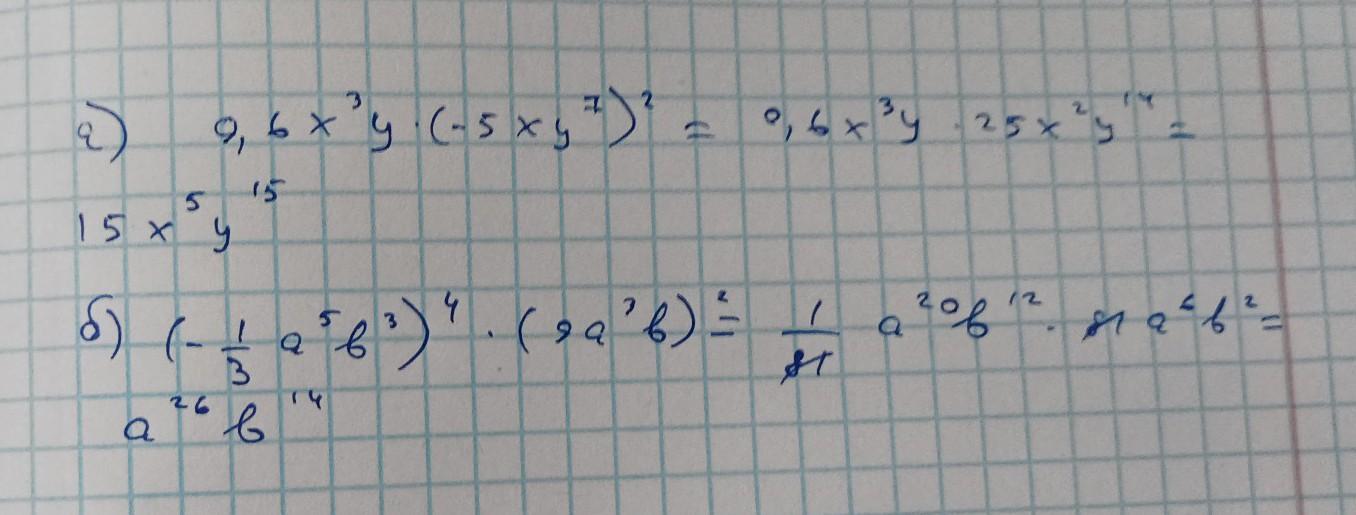 а) 0,6x³y·(-5xy⁷)² = 0,6x³y·25x²y¹⁴ =
15x⁵y¹⁵
б) (-1/3 a⁵b³)⁴·(9a³b)² = 1/81 a²⁰b¹²·81a⁶b² =
a²⁶b¹⁴